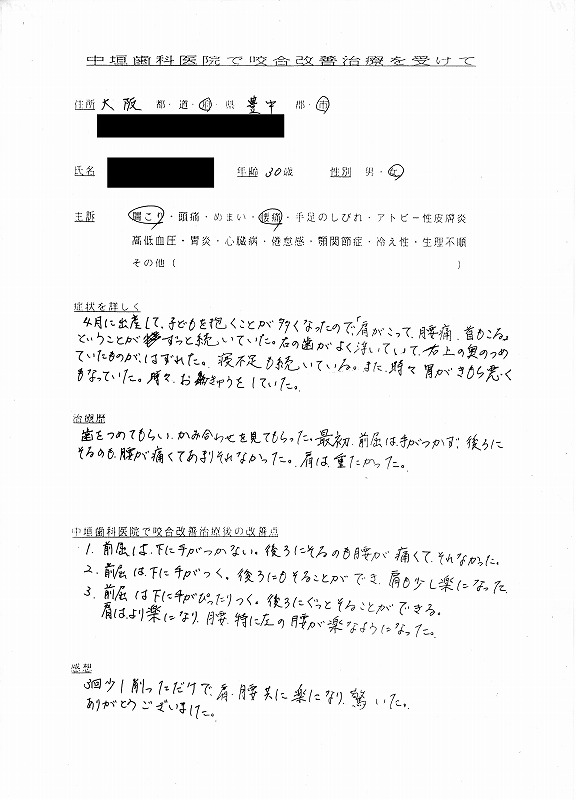 中垣歯科医院で咬合改善治療を受けて
住所 大阪 都・道・府・県 豊中 郡・市
氏名 年齢 30歳 性別 男・女
主訴 肩こり・頭痛・めまい・腰痛・手足のしびれ・アトピー性皮膚炎
高低血圧・胃炎・心臓病・倦怠感・顎関節症・冷え性・生理不順
その他( )
症状を詳しく
4月に出産して、子どもを抱くことが多くなったので、「肩がこって、腰痛、首もこる。」
ということがずっと続いていた。右の歯がよく浮いていて、右上の奥のつめ
ていたものが、はずれた。寝不足も続いている。また、時々胃がきもち悪く
もなっていた。時々、おきゅうをしていた。
治療歴
歯をつめてもらい、かみ合わせを見てもらった。最初、前屈は手がつかず、後ろに
そるのも、腰が痛くてあまりそれなかった。肩は、重たかった。
中垣歯科医院で咬合改善治療後の改善点
1. 前屈は、下に手がつかない。後ろにそるのも腰が痛くて、それなかった。
2. 前屈は、下に手がつく。後ろにもそることができ、肩も少し楽になった
3. 前屈は下に手がぴったりつく。後ろにぐっとそることができる。
肩は、より楽になり、腰、特に左の腰が楽なようになった。
感想
3回少し削っただけで、肩、腰共に楽になり、驚いた。
ありがとうございました。